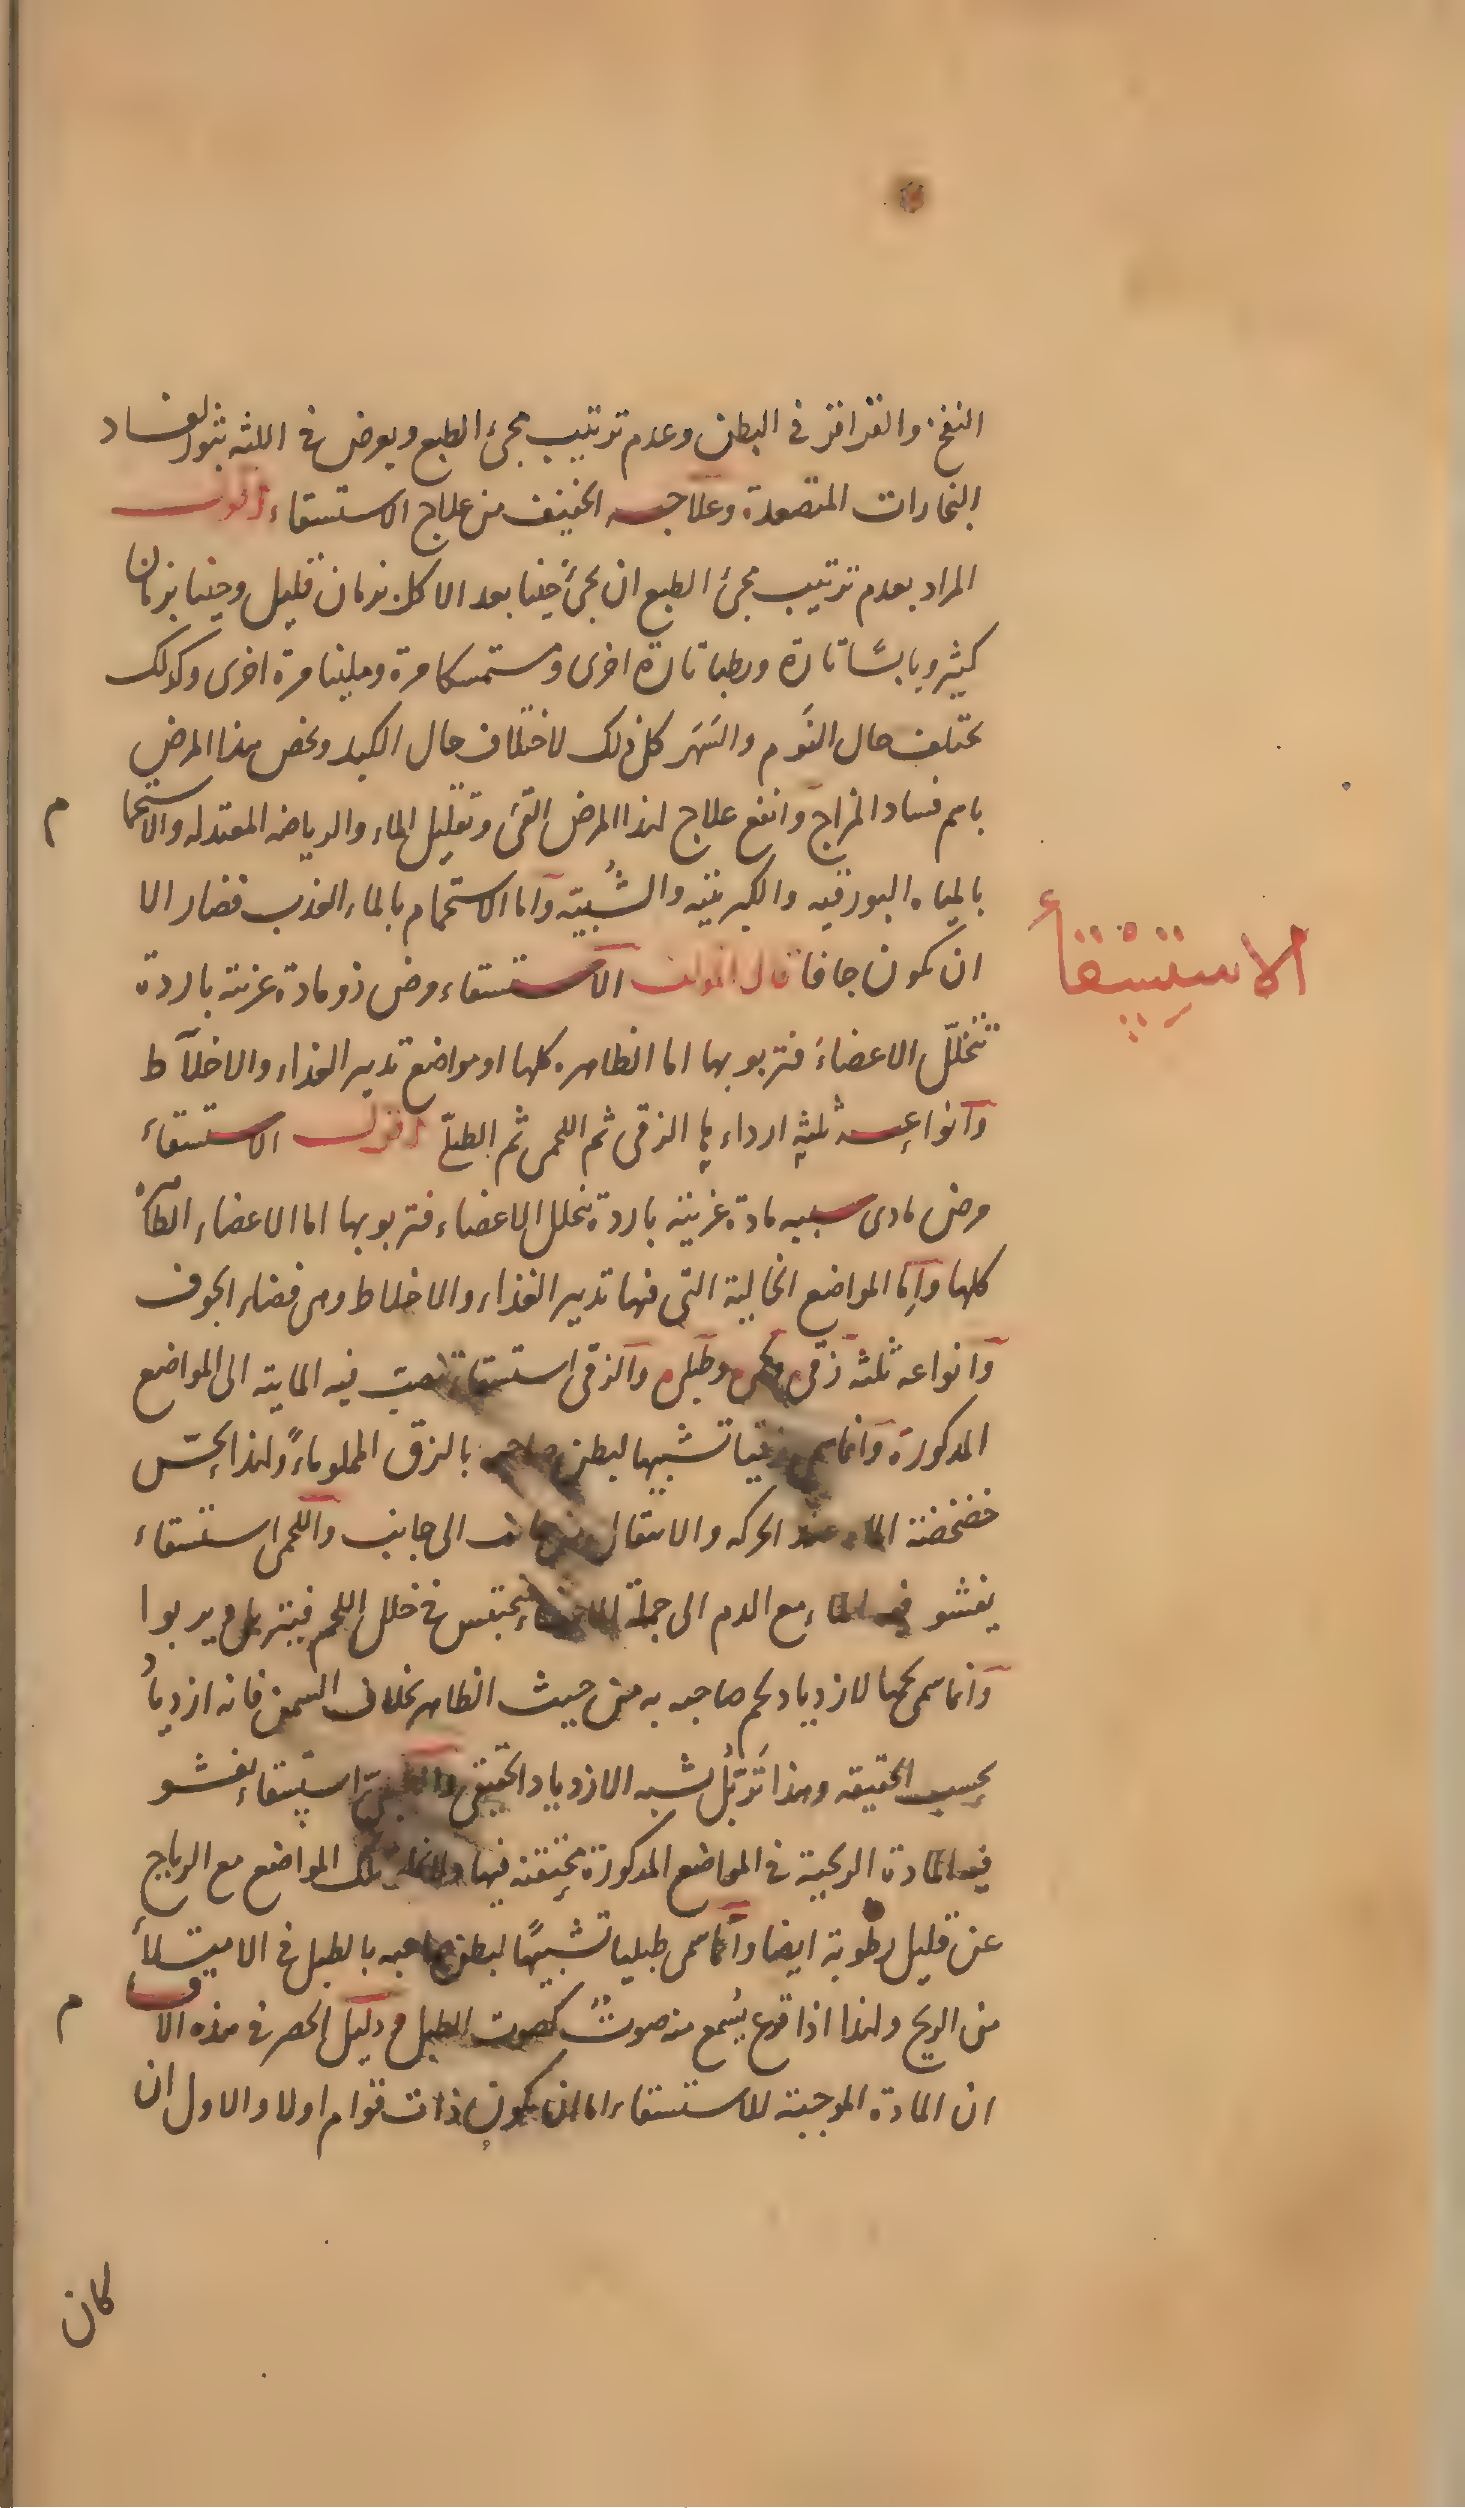 النفخ والقراقر فى البطن وعدم ترتيب مجئ الطبع ويعرض فى اللثه بثور لفساد
البخارات المتصعدة وعلاجه الخفيف من علاج الاستسقاء اقول
المراد بعدم ترتيب مجئ الطبع ان يجئ حينا بعد الاكل بزمان قليل وحينا بزمان
كثير ويابسًا تارة ورطبا تارة اخرى ومستمسكا مرة ومليناً مرة اخرى وكذلك
يختلف حال النوم والسَهَر كل ذلك لاختلاف حال الكبد ويخص هذا المرض
باسم فساد المزاج وانفع علاج لهذا المرض القئ وتقليل الماء والرياضه المعتدله والاستحما م
بالمياه البورقيه والكبريتيه والشبّيّة واما الاستحمام بالماء العذب فضار الا
الاستسقأ
ان يكون جافا قال المؤلف الاستسقاء مرض ذو مادة غريبة باردة
تتخلّل الاعضاء فتربو بها اما الظاهره كلها او مواضع تدبير الغذاء والاخلاط
وانواعه ثلثه ارداءها الزقى ثم اللحمى ثم الطبلىّ اقول الاستسقاء
مرض مادى سببه مادة غريبة باردة تتخلل الاعضاء فتربو بها اما الاعضاء الظاهرة
كلها واما المواضع الخالية التى فيها تدبير الغذاء والاخلاط وهى فضاء الجوف
وانواعه ثلثة زقى ولحمى وطبلى والزقى استسقاء تنصبّ فيه المايية الى المواضع
المذكورة وانما سمى زقيا تشبيها لبطن صاحبه بالزق المملو ماءً ولهذا يحسّ
خضخضة الماء عند الحركه والانتقال من جانب الى جانب واللحمى استسقاء
يفشو فيه الماء مع الدم الى جملة الاعضاء فيحتبس فى خلل اللحم فيتربل ويربوا
وانما سمى لحميا لازدياد لحم صاحبه به من حيث الظاهر بخلاف السمن فانه ازدياد
بحسب الحقيقه وهذا تَرَبُّل شبه الازدياد الحقيقى والطبلىّ استسقاء يفشو
فيه المادة الريحية فى المواضع المذكورة مختنقة فيها تلك المواضع مع الرياح
عن قليل رطوبة ايضا وانما سمى طبليا تشبيهًا لبطن صاحبه بالطبل فى الامتلأ
من الريح ولهذا اذا قرع يُسمع منه صوتٌ كصوت الطبل ودليل الحصر فى هذه الاقسا م
ان المادة الموجبة للاستسقاء اما ان يكون ذات قوام اولا والاول ان
كان